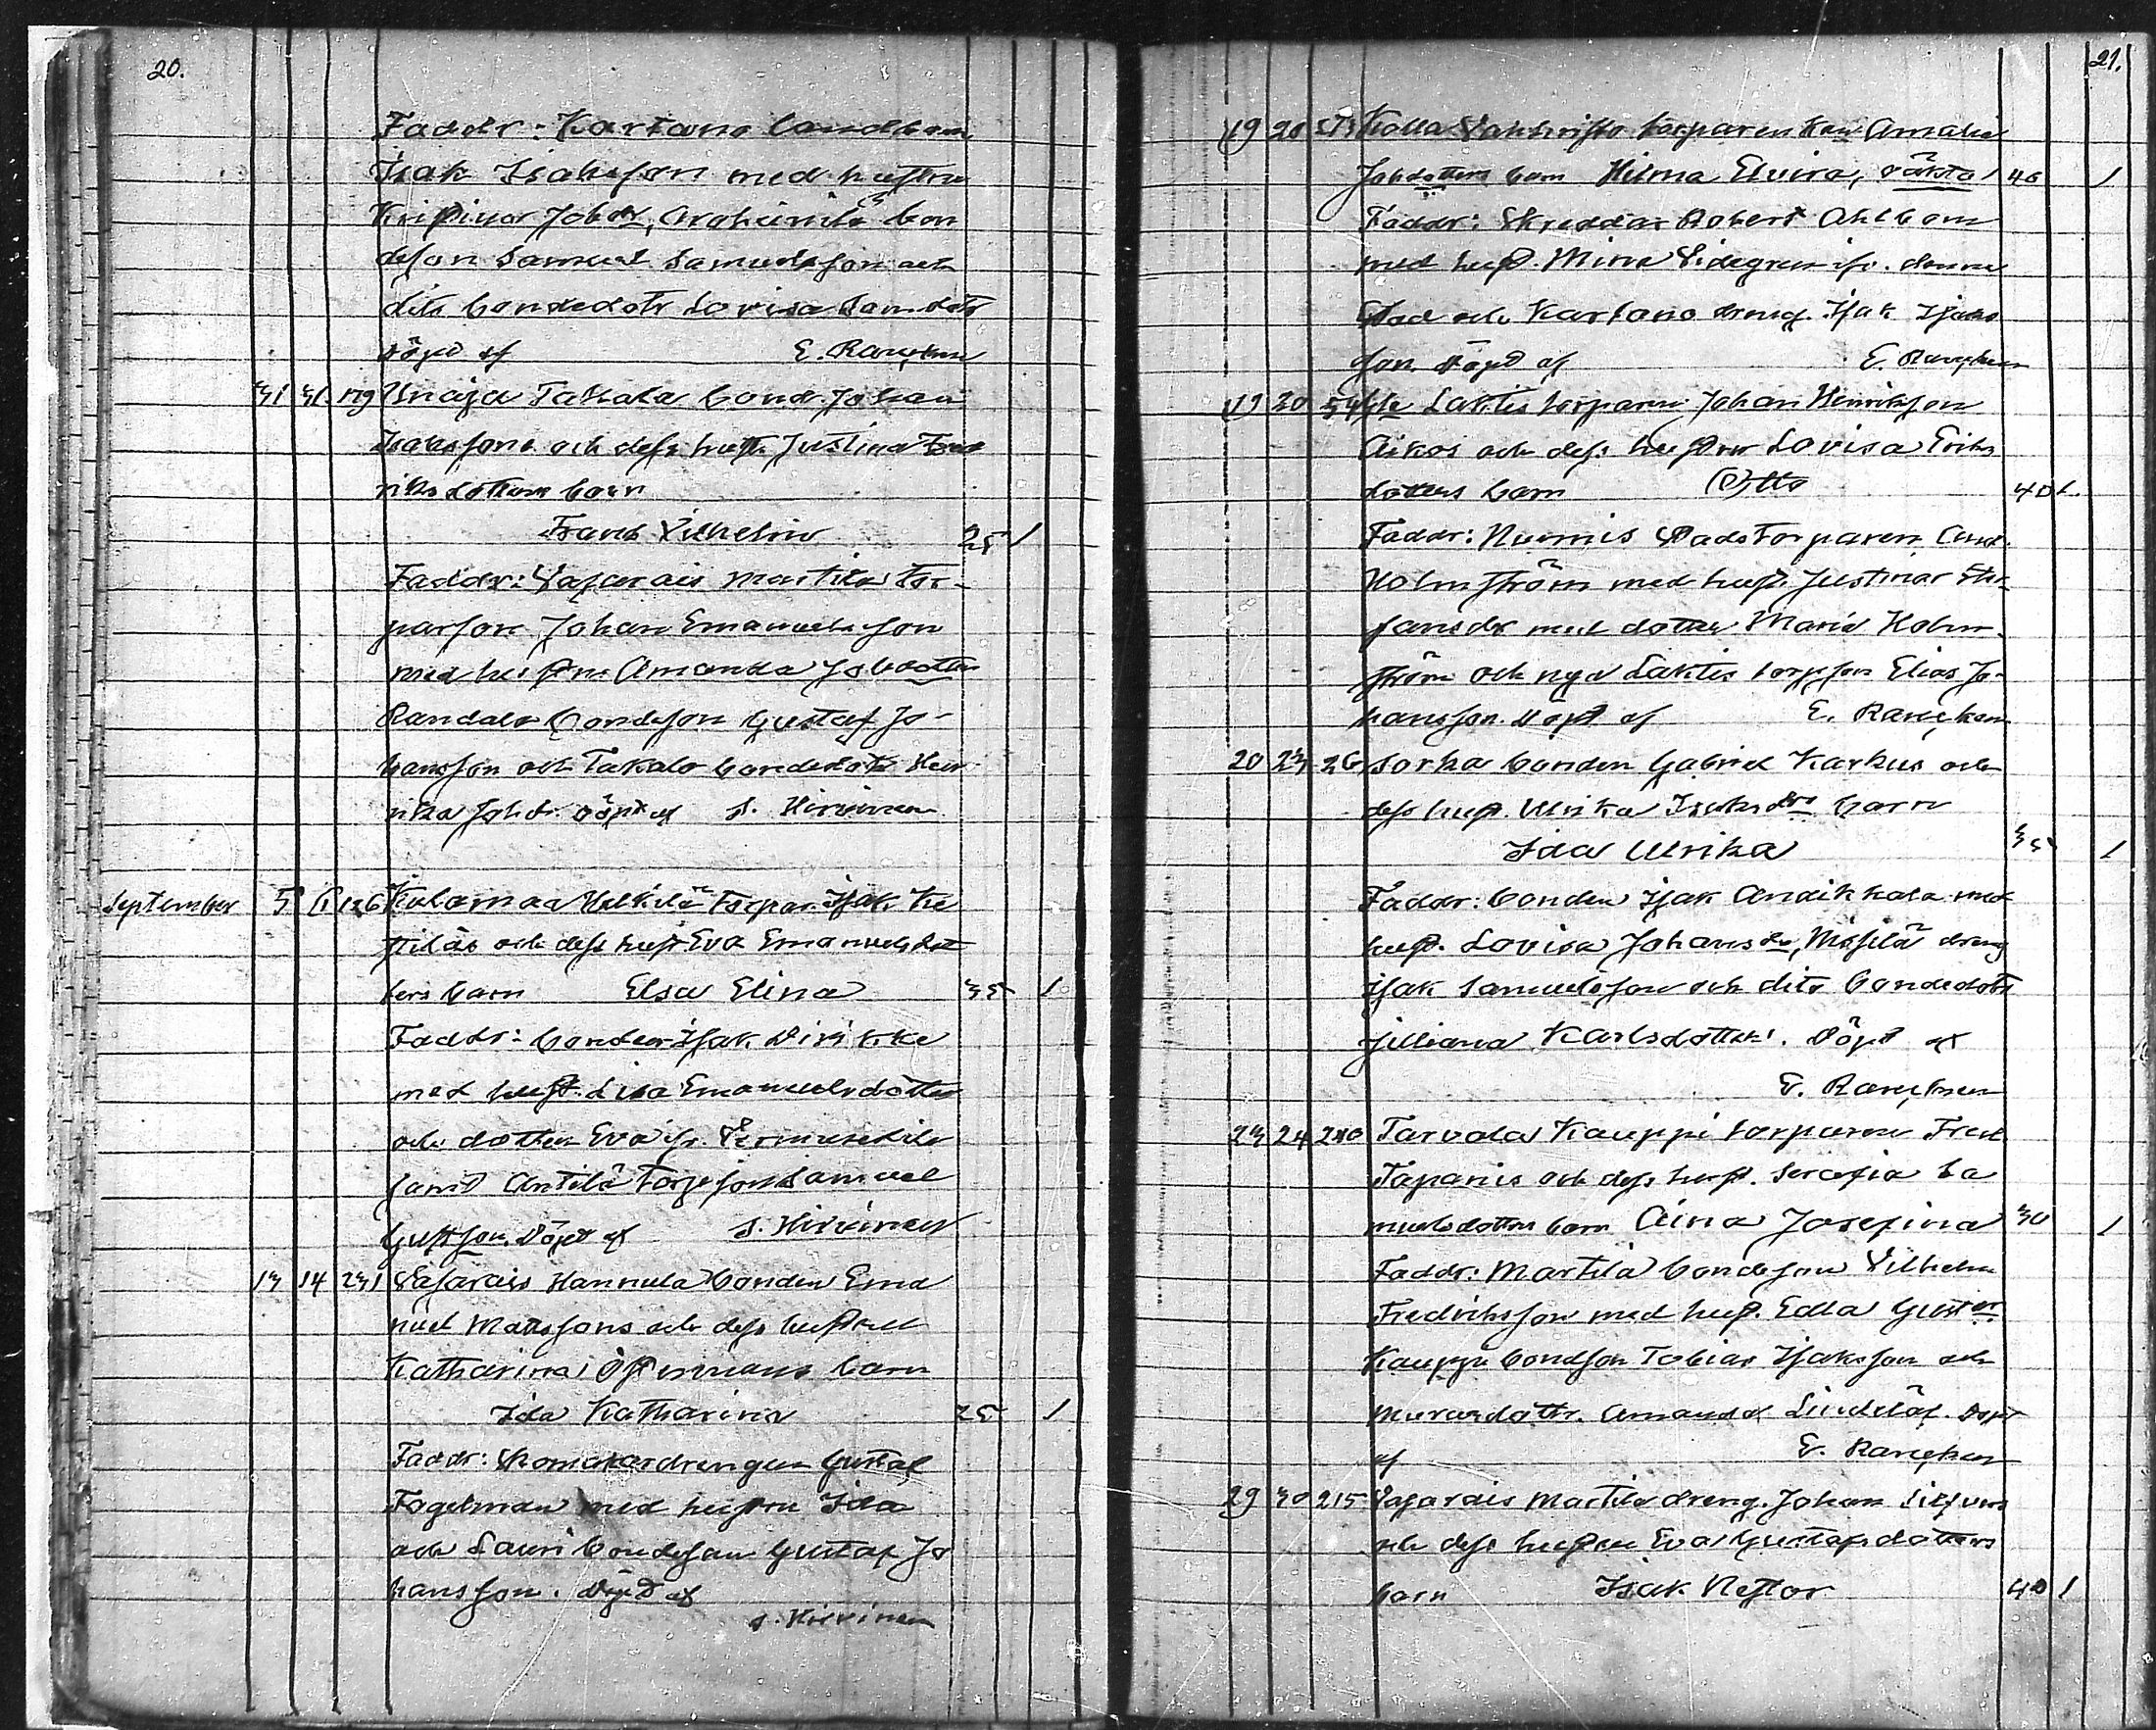 20.
Faddr: Kartano landbon
Isak Isaksson med hustru
Kristina Jobdr, bon
deson Samuel Samuelsson och
dito bondedotr Lovisa Samdotr
döpt af E. Rancken
31 31 179 Unaja Takala bond. Johan
Isakssons och dess hustr. Justina Fred
riksdotters barn
Frans Vilhelm 25 1
Faddr: Vasarais Martila tor-
parson Johan Emanuelsson
med hustru Amanda Jobdotter
Randala bondeson Gustaf Jo-
hansson och Takalo bondedotr Hen
rika Johdr. döpt af S. Hirvinen
September 5 6 126 Kulamaa Heikilä torpar. Isak Kie
och dess hust Eva Emanuelsdot
ters barn Elsa Elina 35 1
Faddr: bonden Isak
med hust. Lisa Emanuelsdotter
och dotter Eva
samt Antilä torpeson Samuel
Gustson. Döpt af S. Hirvinen
13 14 231 Vasarais Hannula bonden Ema
nuel Matssons och dess hustru
Katharina Östermans barn
Ida Katharina 25 1
Faddr: Skomakardrengen Gustaf
Fogelman med hustru Ida
och Lauri bondeson Gustaf Jo
hansson. Döpt af
S. Hirvinen
21.
19 20 Kolla torparen Amalia
Johdotters barn Hilma Elvira, oäkta 40 1
Faddr: Skreddar Robert Ahlbom
med hust. Mina Videgren ifr. denna
stad och Kartano dreng. Isak Isaks
son. Döpt af E. Rancken
19 20 54 Laktis torparen Johan Henriksson
Aikos och dess hustru Lovisa Eriks
dotters barn Otto 40 1
Faddr: Nurmis Stadstorparen And.
Holmström med hust. Justina Ste-
fansdr med dotter Maria Holm-
ström och nya Laktis torpson Elias Jo-
hansson. Döpt af E. Rancken
20 23 26 Sorka bonden Gabriel Karkus och
dess hust. Ulrika Isaksdrs barn
Ida Ulrika 35 1
Faddr: bonden Isak Andikkala med
hust. Lovisa Johansdr, dreng
Isak Samuelsson och dito bondedotr
Juliana Karlsdotter. Döpt af
E. Rancken
23 24 240 Tarvola Kauppi torparen Fred
Tapanis och dess hust. Serafia Sa
muelsdotters barn Aina Josefina 30 1
Faddr: Martila bondeson Vilhelm
Fredriksson med hust. Edla
Kauppi bondson Tobias Isaksson och
murardottr. Amanda Lindelöf. Döpt
af E. Rancken
29 30 215 Vasarais Martila dreng. Johan Silfvers
och dess hustru Eva Gustafsdotters
barn Isak Nestor 40 1